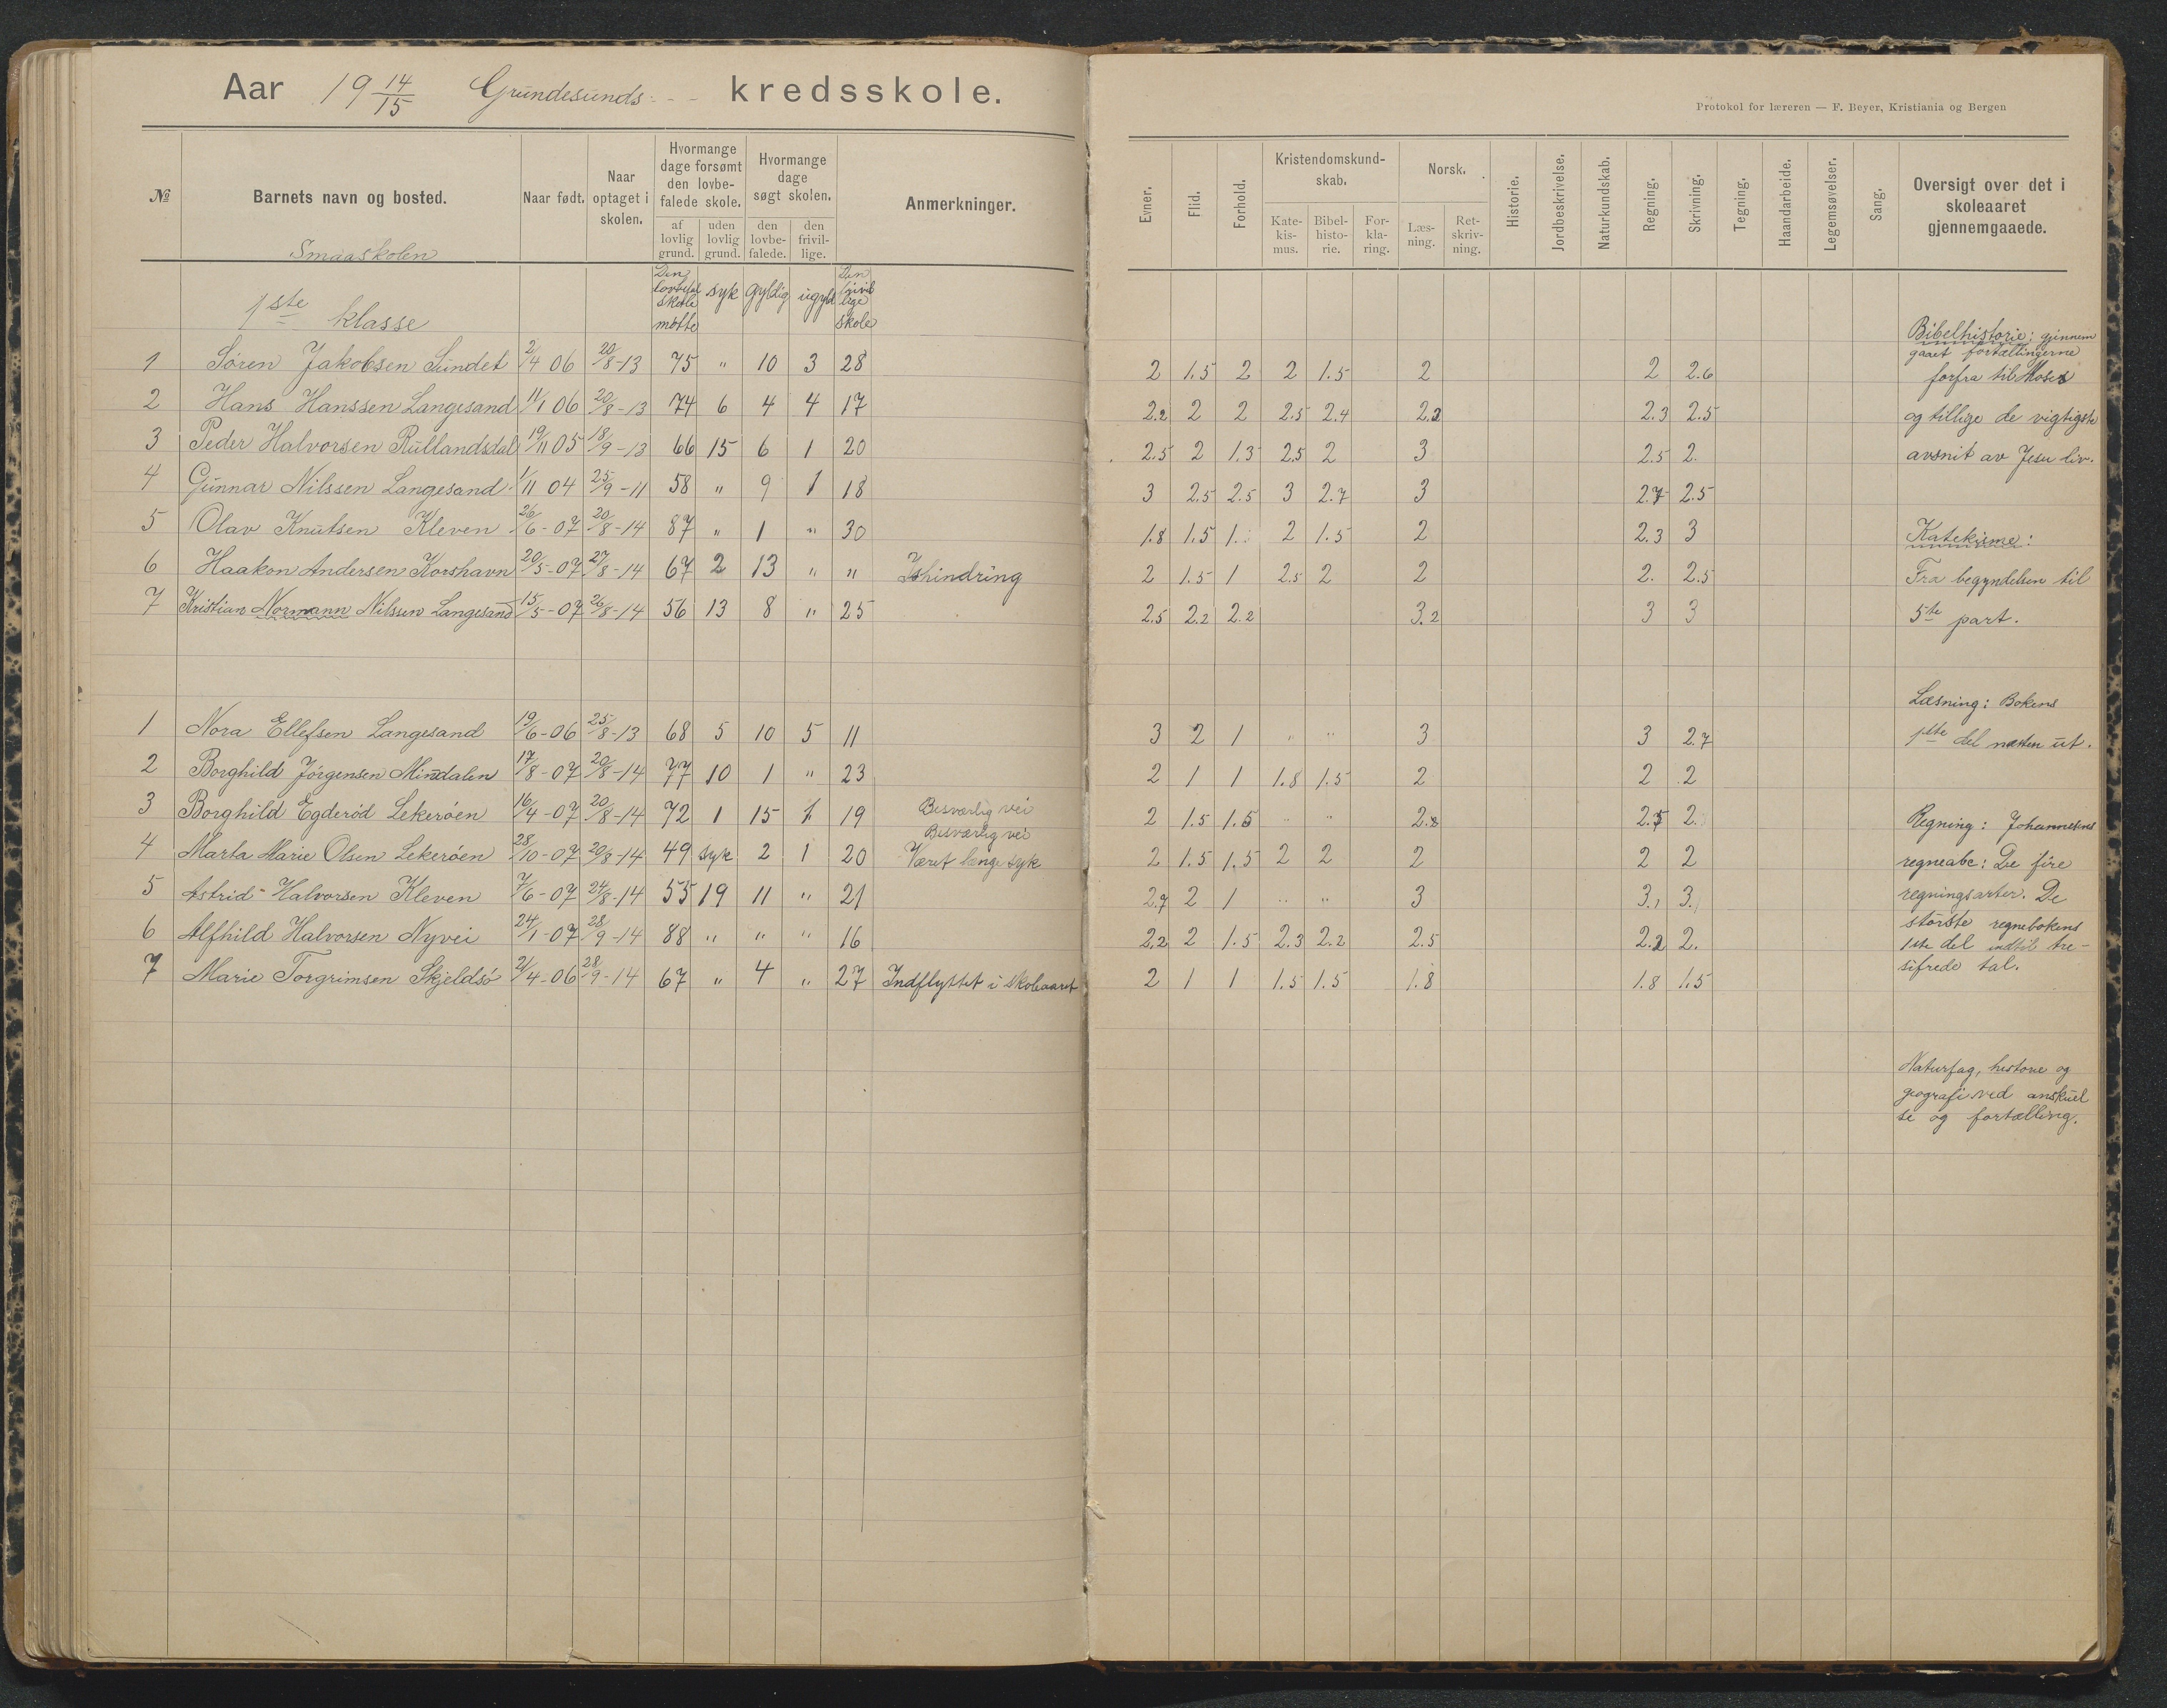 Aar 19 14/15 Grundesunds kredsskole.
Protokol for læreren — F. Beyer, Kristiania og Bergen
№ Barnets navn og bosted. Naar født. Naar optaget i skolen. Hvormange dage forsømt den lovbefalede skole. af lovlig grund. uden lovlig grund. Hvormange dage søgt skolen. den lovbefalede. den frivillige. Anmerkninger.
Evner. Flid. Forhold. Kristendomskundskab. Katekismus. Bibelhistorie. Forklaring. Norsk. Læsning. Retskrivning. Historie. Jordbeskrivelse. Naturkundskab. Regning. Skrivning. Tegning. Haandarbeide. Legemsøvelser. Sang. Oversigt over det i skoleaaret gjennemgaaede.
Smaaskolen
1ste klasse Den lovbefal skole møtte syk gyldig ugyld Den frivillige skole
1 Søren Jakobsen Sundet 2/4 06 20/8-13 75 " 10 3 28 2 1.5 2 2 1.5 2 2 2.6
2 Hans Hanssen Langesand 11/1 06 20/8-13 74 6 4 4 17 2.2 2 2 2.5 2.4 2.2 2.3 2.5
3 Peder Halvorsen Rullandsdal 19/11 05 18/9-13 66 15 6 1 20 2.5 2 1.3 2.5 2 3 2.5 2.
4 Gunnar Nilssen Langesand 1/11 04 25/9-11 58 " 9 1 18 3 2.5 2.5 3 2.7 3 2.7 2.5
5 Olav Knutsen Kleven 26/6-07 20/8-14 87 " 1 " 30 1.8 1.5 1. 2 1.5 2 2.3 3
6 Haakon Andersen Korshavn 20/5-07 27/8-14 67 2 13 " " Ishindring 2 1.5 1 2.5 2 2 2. 2.5
7 Kristian Normann Nilssen Langesand 15/5-07 26/8-14 56 13 8 " 25 2.5 2.2 2.2 3.2 3 3
1 Nora Ellefsen Langesand 19/6-06 25/8-13 68 5 10 5 11 3 2 1 " " 3 3 2.7
2 Borghild Jørgensen Mindalen 17/8-07 20/8-14 77 10 1 " 23 2 1 1 1.8 1.5 2 2 2
3 Borghild Egderød Lekerøen 16/4-07 20/8-14 72 1 15 1 19 Besværlig vei 2 1.5 1.5 " " 2.8 2.5 2.
4 Marta Marie Olsen Lekerøen 28/10-07 20/8-14 49 syk 2 1 20 Besværlig vei Været længe syk 2 1.5 1.5 2 2 2 2 2
5 Astrid Halvorsen Kleven 7/6-07 24/8-14 55 19 11 " 21 2.7 2 1 " " 3 3. 3.
6 Alfhild Halvorsen Nyvei 24/1-07 28/9-14 88 " " " 16 2.2 2 1.5 2.3 2.2 2.5 2.2 2.
7 Marie Torgrimsen Skjeldsø 21/4-06 28/9-14 67 " 4 " 27 Indflyttet i skoleaaret 2 1 1 1.5 1.5 1.8 1.8 1.5
Bibelhistorie: gjennem
gaaet fortællingerne
forfra til Moses
og tillige de vigtigste
avsnit av Jesu liv.
Katekisme:
Fra begyndelsen til
5te part.
Læsning: Bokens
1ste del næsten ut.
Regning: Johannesens
regneabc: De fire
regningsarter. De
største regnebokens
1ste del indtil tre-
sifrede tal.
Naturfag, historie og
geografi ved anskuel
se og fortælling.